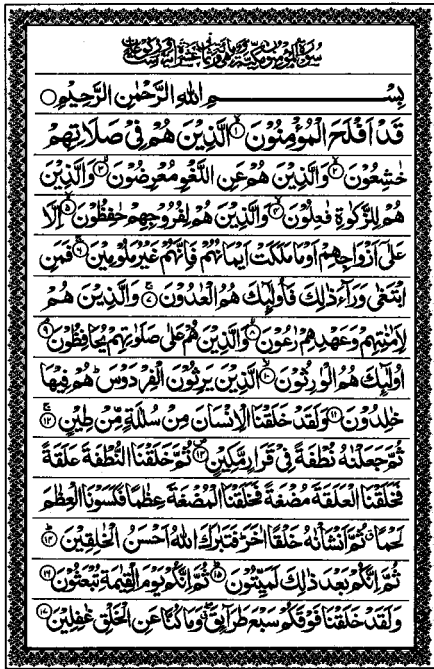 بِسْمِ اللهِ الرَّحْمٰنِ الرَّحِيْمِ
قَدْ اَفْلَحَ الْمُؤْمِنُوْنَ ۝۱ الَّذِيْنَ هُمْ فِيْ صَلَاتِهِمْ
خٰشِعُوْنَ ۝۲ وَالَّذِيْنَ هُمْ عَنِ اللَّغْوِ مُعْرِضُوْنَ ۝۳ وَالَّذِيْنَ
هُمْ لِلزَّكٰوةِ فٰعِلُوْنَ ۝۴ وَالَّذِيْنَ هُمْ لِفُرُوْجِهِمْ حٰفِظُوْنَ ۝۵ اِلَّا
عَلٰٓى اَزْوَاجِهِمْ اَوْ مَا مَلَكَتْ اَيْمَانُهُمْ فَاِنَّهُمْ غَيْرُ مَلُوْمِيْنَ ۝۶ فَمَنِ
ابْتَغٰى وَرَآءَ ذٰلِكَ فَاُولٰٓئِكَ هُمُ الْعٰدُوْنَ ۝۷ وَالَّذِيْنَ هُمْ
لِاَمٰنٰتِهِمْ وَعَهْدِهِمْ رٰعُوْنَ ۝۸ وَالَّذِيْنَ هُمْ عَلٰى صَلَوٰتِهِمْ يُحَافِظُوْنَ ۝۹
اُولٰٓئِكَ هُمُ الْوٰرِثُوْنَ ۝۱۰ الَّذِيْنَ يَرِثُوْنَ الْفِرْدَوْسَ ؕ هُمْ فِيْهَا
خٰلِدُوْنَ ۝۱۱ وَلَقَدْ خَلَقْنَا الْاِنْسَانَ مِنْ سُلٰلَةٍ مِّنْ طِيْنٍ ۝۱۲
ثُمَّ جَعَلْنٰهُ نُطْفَةً فِيْ قَرَارٍ مَّكِيْنٍ ۝۱۳ ثُمَّ خَلَقْنَا النُّطْفَةَ عَلَقَةً
فَخَلَقْنَا الْعَلَقَةَ مُضْغَةً فَخَلَقْنَا الْمُضْغَةَ عِظٰمًا فَكَسَوْنَا الْعِظٰمَ
لَحْمًا ثُمَّ اَنْشَاْنٰهُ خَلْقًا اٰخَرَ ؕ فَتَبٰرَكَ اللهُ اَحْسَنُ الْخٰلِقِيْنَ ۝۱۴
ثُمَّ اِنَّكُمْ بَعْدَ ذٰلِكَ لَمَيِّتُوْنَ ۝۱۵ ثُمَّ اِنَّكُمْ يَوْمَ الْقِيٰمَةِ تُبْعَثُوْنَ ۝۱۶
وَلَقَدْ خَلَقْنَا فَوْقَكُمْ سَبْعَ طَرَآئِقَ ۖ وَمَا كُنَّا عَنِ الْخَلْقِ غٰفِلِيْنَ ۝۱۷